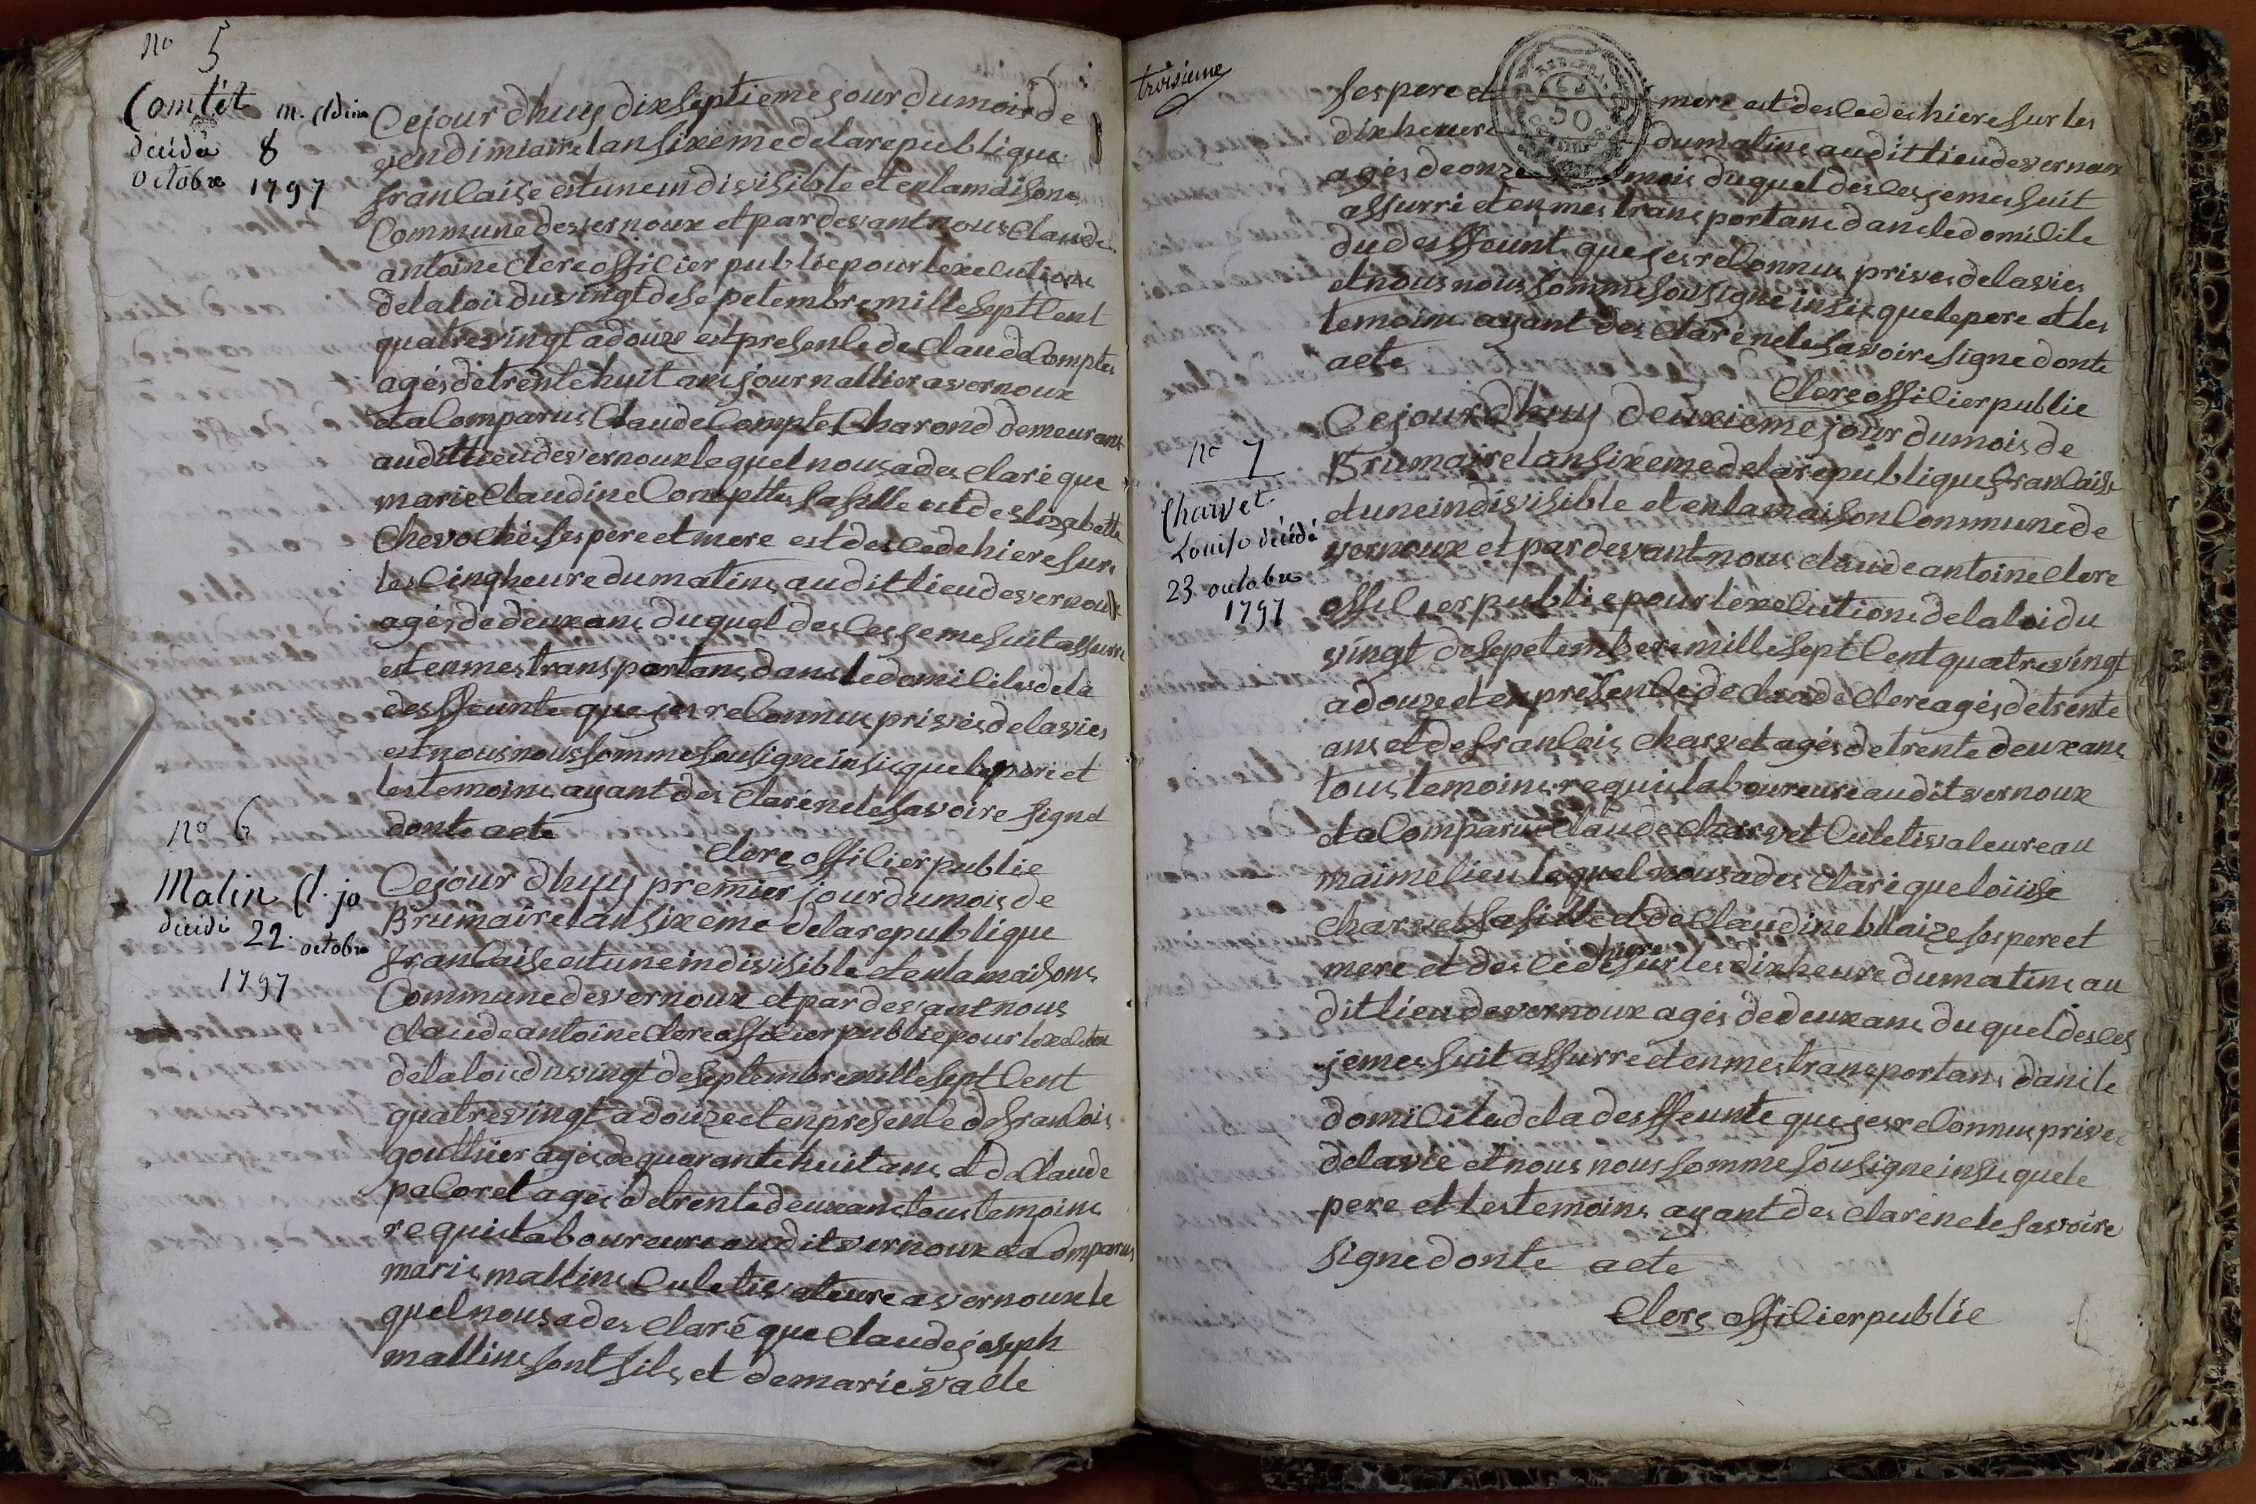 No 5
Comtet m. Cldine
décédée 8
octobre 1797
Cejour dhuy dixseptieme jour dumois de
vendimiaire lan sixeme delarepublique
francaise est une indivisible et enlamaisone
Commune devernoux et pardevant nous Claude
antoine Clerc officier publie pour lexecutions
delaloi du vingt desepetembre mille sept Cent
quatrevingt adouze est presence de Claude Comptes
agés detrente huit ans journallier avernoux
eta Comparus Claude Compte Charond demeurans
audit lieu devernoux lequel nous a des Claré que
marie Claudine Comptes sa fille est de Elizabette
Chevoché ses pere et mere est des cede hiere sur
les Cinq heure dumatins audit lieu devernoux
agés de deux ans duquel des Ces jeme suit assurre
est enmes transportans dans le domiciles dela
desffeunte que jes reConnus privés delavies
est nous nous somme sousigne insi que le pere et
les temoins ayant des Clarénele savoire signe
donte acte
Clerc officier publie
No 6
Malin Cl. jo
décédé 22 octobre
1797
Cejour dhuy premier jour dumois de
Brumaire lan sixeme delarepublique
francaise est une indivisible et enlamaisons
Commune devernoux et pardevant nous
Claude antoine Clerc officier publie pour lexecution
delaloi du vingt deseptembre mille sept Cent
quatrevingt adouze et enpresence de francois
gouthier agés de quarante huit ans et de Claude
paCoret agés detrente deux ans tous temoins
requis laboureure audit vernoux eta Comparus
maris mallins Culetivateure avernoux le
quel nous a des Claré que Claude joseph
mallins sont fils et de marie valle
troisieme
REP. FRA.
50
ses pere et mere est des cedes hiere sur les
dix heure dumatins audit lieu devernoux
agés de onze mois duquel des Ces jemes suit
assurré et enmes transportans dans le domicile
du desffeunt que jes reConnus prives delavies
et nous nous somme sousigne insis que le pere et les
temoins ayant des Clarénele savoire signe donte
acte
Clerc officier publie
no 7
Charvet
Louise décédé
23 octobre
1797
Cejour dhuy deuxieme jour dumois de
Brumaire lan sixeme delarepublique francaise
et une indivisible et enlamaison Commune de
vernoux et pardevant nous Claude antoine Clerc
officier publie pour lexecutions delaloi du
vingt desepetembere mille sept Cent quatrevingt
adouze et enpresence de Claude Clerc agés detrente
ans et de francois Charvet agés detrente deux ans
tous temoins requis laboureure audit vernoux
eta Comparus Claude Charvet Culetivaleure au
maimé lieu lequel nous a des Claré que loüise
Charvet sa fille et de Claudine blaize ses pere et
mere et des cede hiere sur les dix heure dumatins au
dit lieu devernoux agés de deux ans duquel des Ces
jemes suit assurré et enmes transportans dans le
domicile dela desffeunte que jes reConnus prives
delavie et nous nous somme sousigne insi que le
pere et les temoins ayant des Clarénele savoire
signe donte acte
Clerc officier publie